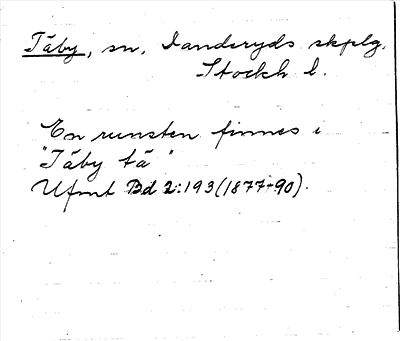 Täby, sn, Danderyds skplg.
Stockh l.
En runsten finnes i
"Täby tä"
Ufmt Bd 2:193(1877-90).